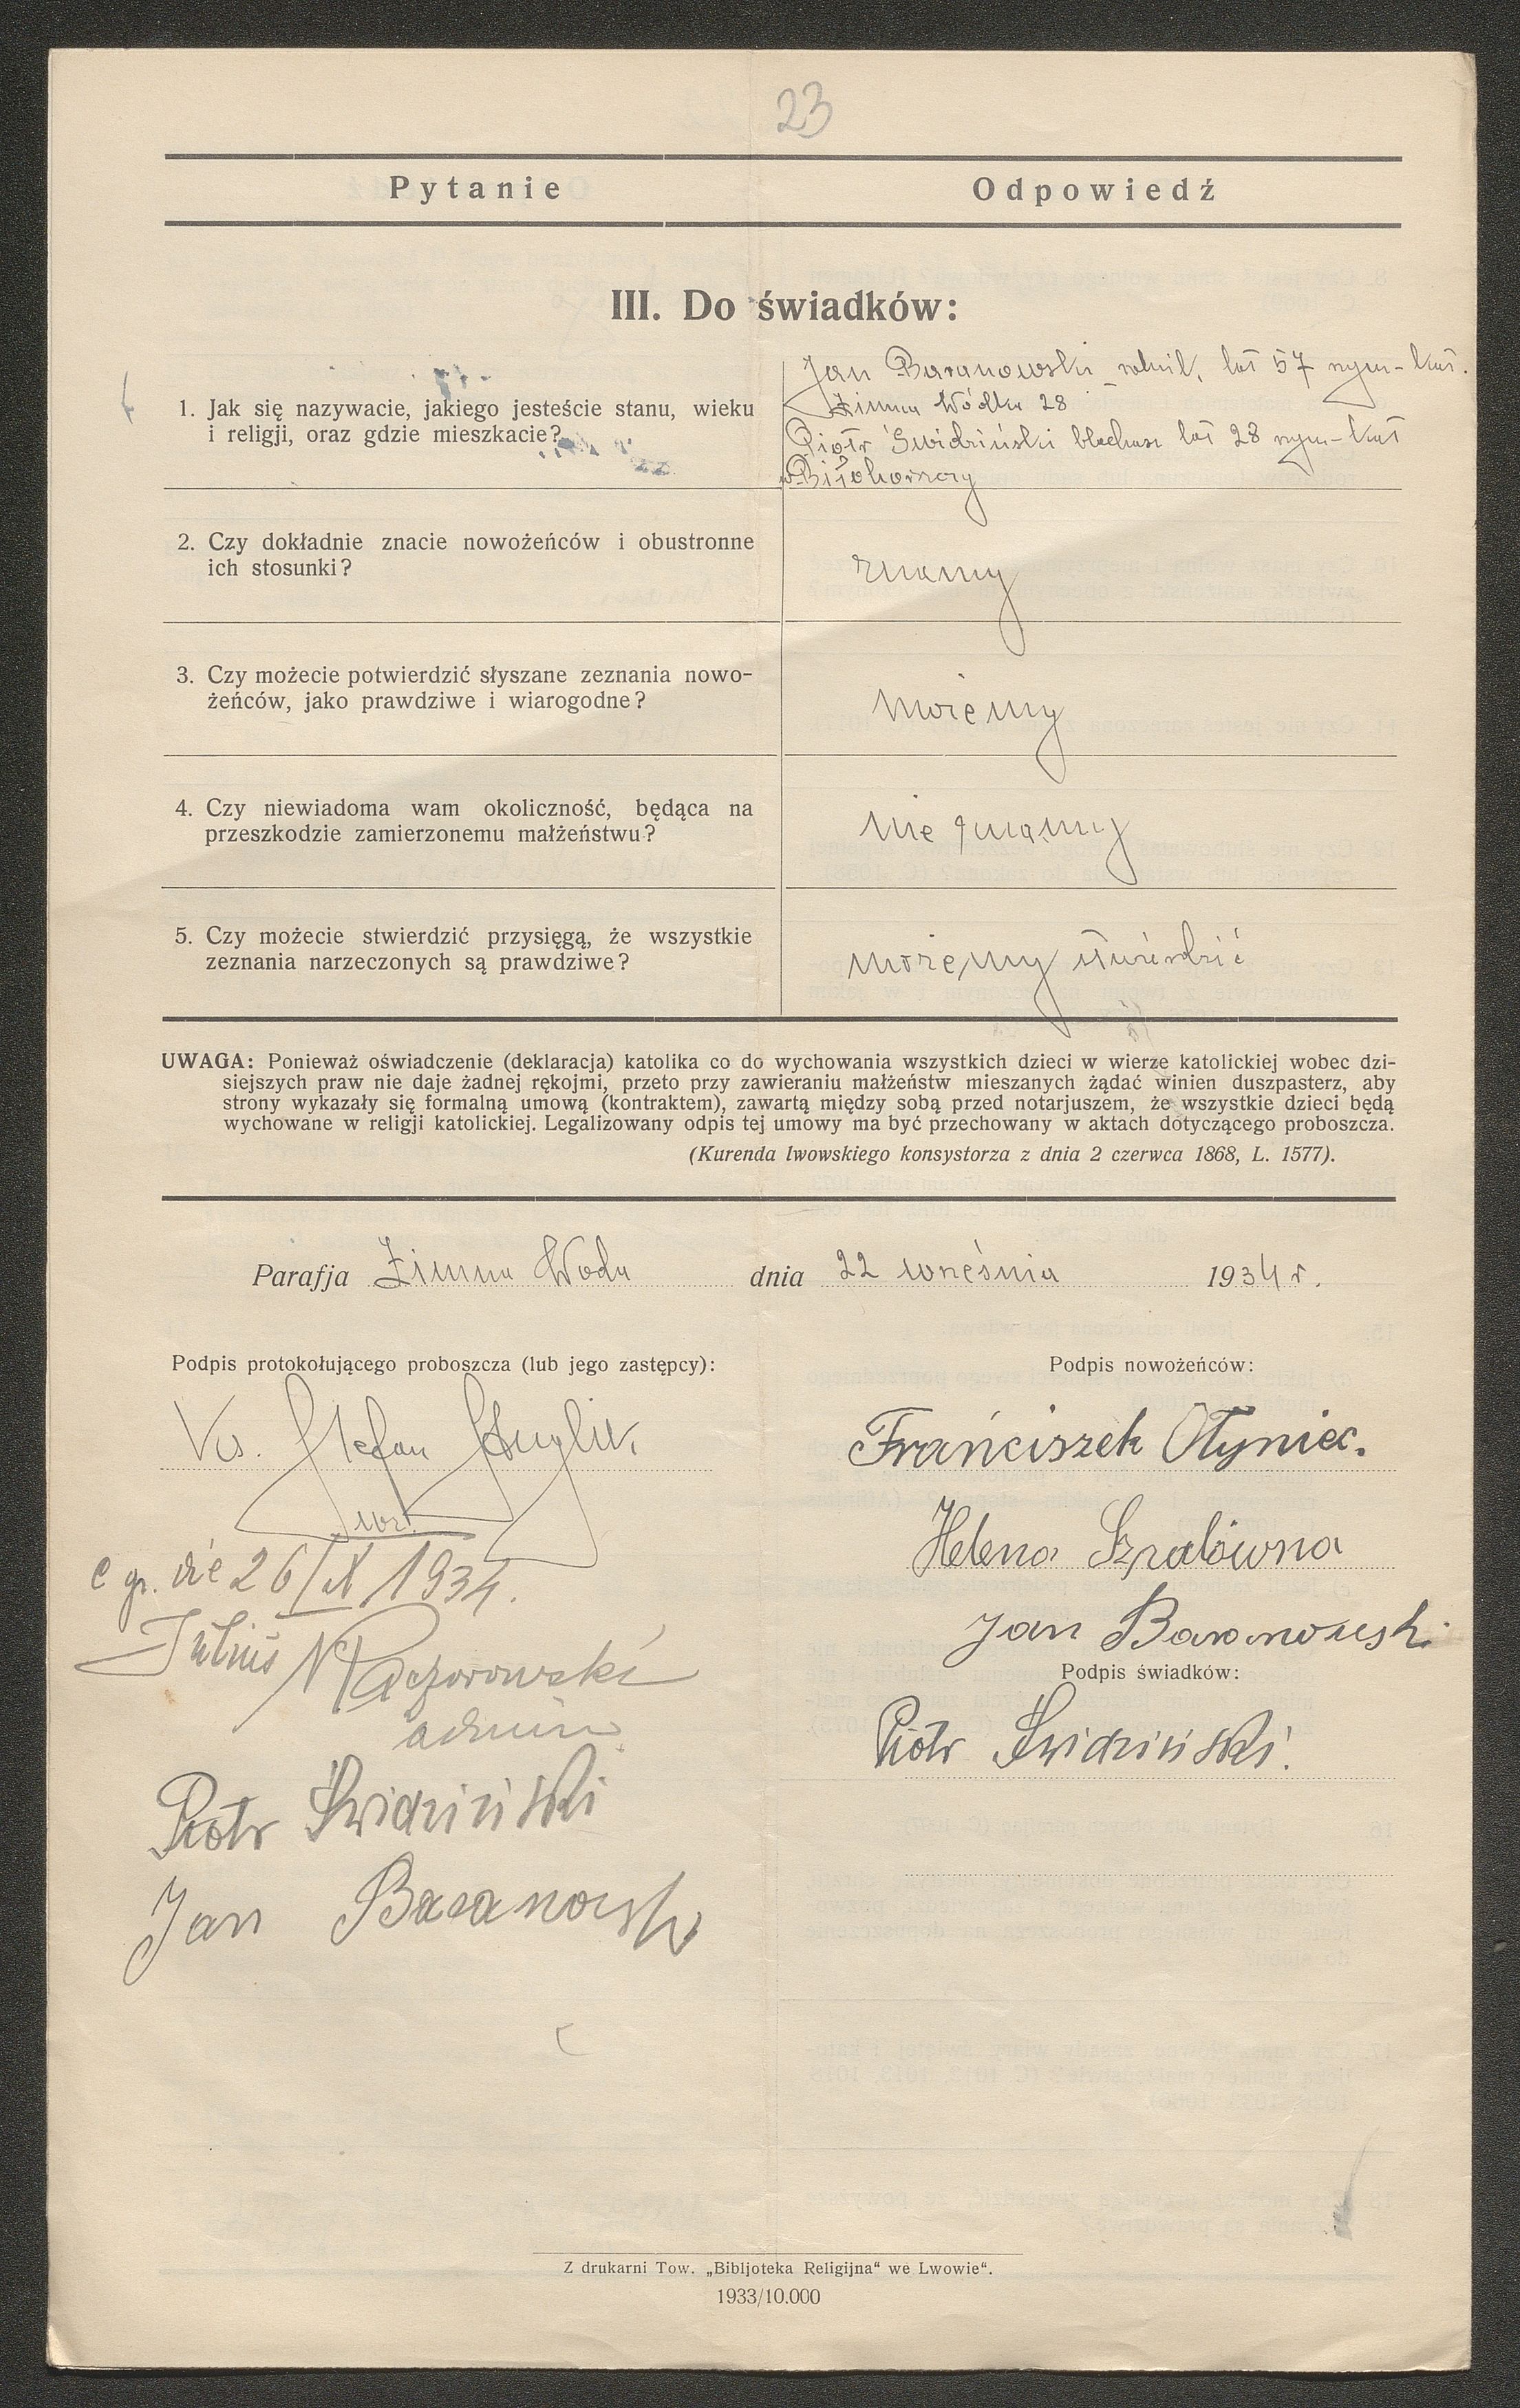 23
Pytanie Odpowiedź
III. Do świadków:
1. Jak się nazywacie, jakiego jesteście stanu, wieku
i religji, oraz gdzie mieszkacie?
Jan Baranowski rolnik, lat 57 rzym-kat.
Zimna Wódka 28
Piotr Świdziński blacharz lat 28 rzym-kat
w Biłohorszczy
2. Czy dokładnie znacie nowożeńców i obustronne
ich stosunki?
znamy
3. Czy możecie potwierdzić słyszane zeznania nowo-
żeńców, jako prawdziwe i wiarogodne?
możemy
4. Czy niewiadoma wam okoliczność, będąca na
przeszkodzie zamierzonemu małżeństwu?
nie znamy
5. Czy możecie stwierdzić przysięgą, że wszystkie
zeznania narzeczonych są prawdziwe?
możemy stwierdzić
UWAGA: Ponieważ oświadczenie (deklaracja) katolika co do wychowania wszystkich dzieci w wierze katolickiej wobec dzi-
siejszych praw nie daje żadnej rękojmi, przeto przy zawieraniu małżeństw mieszanych żądać winien duszpasterz, aby
strony wykazały się formalną umową (kontraktem), zawartą między sobą przed notarjuszem, że wszystkie dzieci będą
wychowane w religji katolickiej. Legalizowany odpis tej umowy ma być przechowany w aktach dotyczącego proboszcza.
(Kurenda lwowskiego konsystorza z dnia 2 czerwca 1868, L. 1577).
Parafja Zimna Woda dnia 22 września 1934 r.
Podpis protokołującego proboszcza (lub jego zastępcy): Podpis nowożeńców:
Stefan
Franciszek Ołyniec.
Helena
Jan Baranowski
Podpis świadków:
Piotr Świdziński.
26/IX 1934.
Julius
admin
Piotr Świdziński
Jan Baranowski
Z drukarni Tow. „Bibljoteka Religijna“ we Lwowie“.
1933/10.000